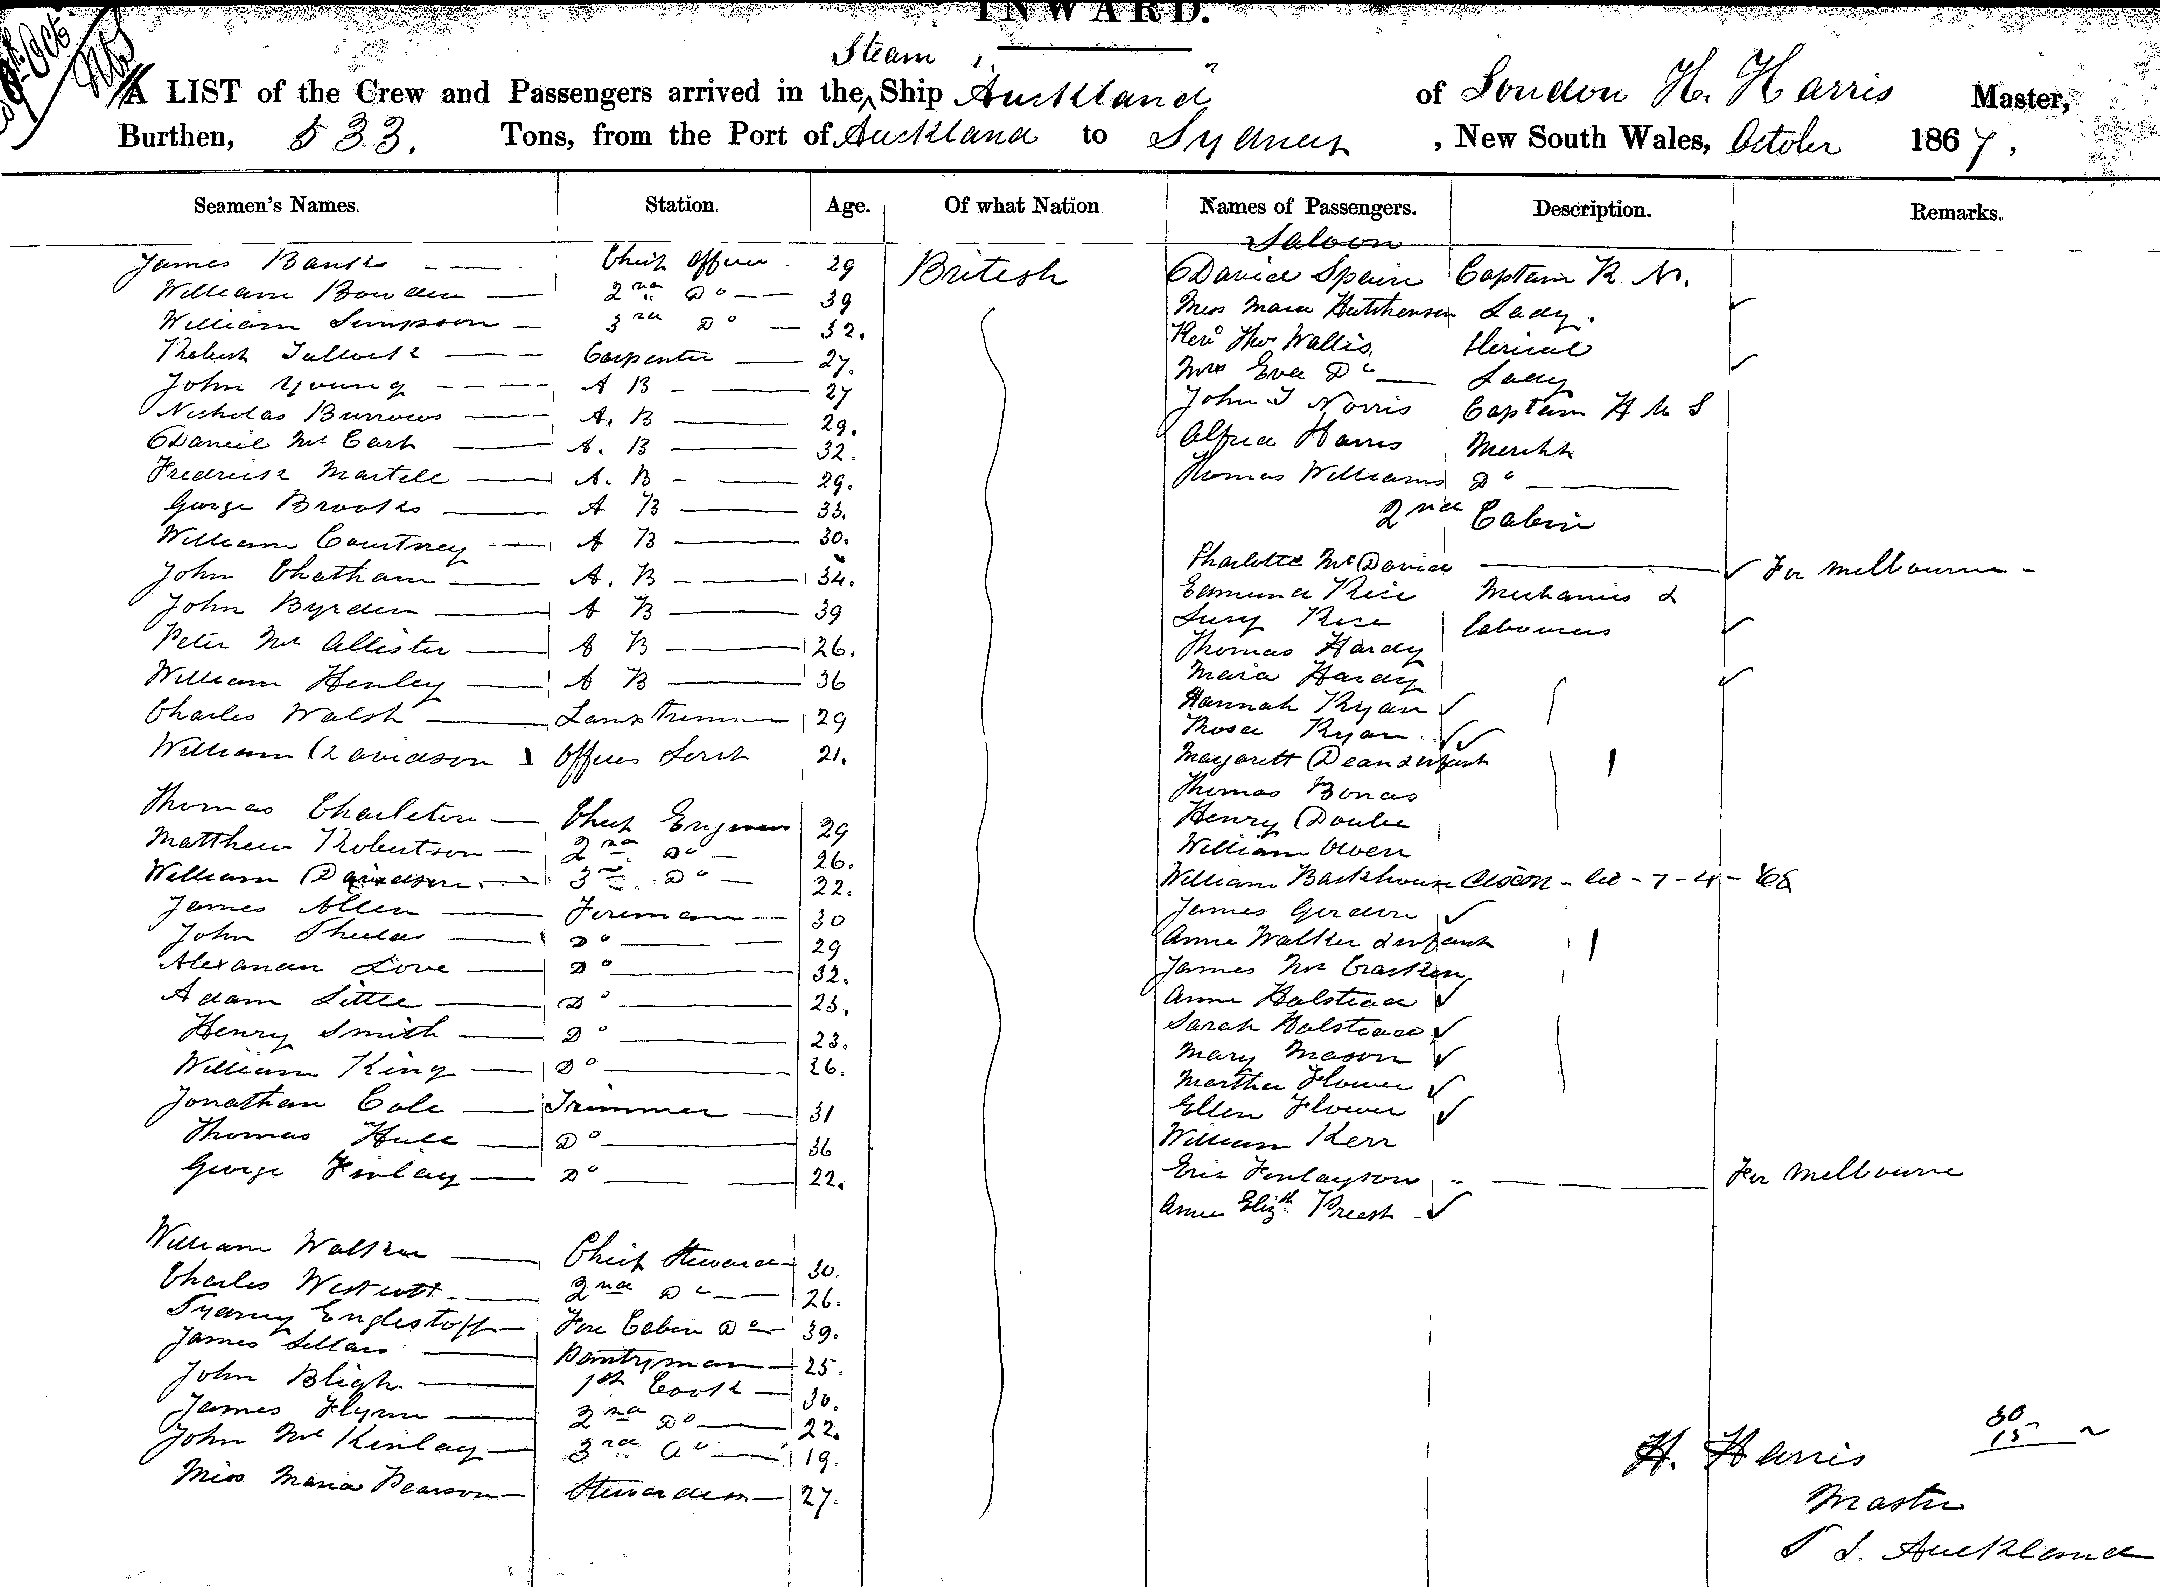 INWARD.
Steam
A LIST of the Crew and Passengers arrived in the ^ Ship "Auckland" of London H. Harris Master,
Burthen, 533. Tons, from the Port of Auckland to Sydney, New South Wales, October 1867,
Seamen's Names. Station. Age. Of what Nation Names of Passengers. Description. Remarks.
James Banks Chief Officer 29 British
William Bowden 2nd Do 39
William Simpson 3rd Do 32.
Robert Tullock Carpenter 27.
John Young A B 27
Nicholas Burrows A. B 29.
Daneil Mc Cart A. B 32.
Fredrick Martell A. B 29.
George Brooks A B 33.
William Courtney A B 30.
John Chatham A. B 34.
John Byrden A B 39
Peter Mc Allister A B 26.
William Henley A B 36
Charles Walsh Lamptrimmer 29
William Davidson Officers Servt 21.
Thomas Charleton Chief Engineer 29
Matthew Robertson 2nd Do 26.
William Davidson 3rd Do 22.
James Allen Fireman 30
John Do 29
Alexander Love Do 32.
Adam Little Do 23.
Henry Smith Do 23.
William King Do 26.
Jonathan Cole Trimmer 31
Thomas Hull Do 36
George Finlay Do 22.
William Walker Chief Steward 30.
Charles Westcott 2nd Do 26.
Sydney Englestoff Fore Cabin Do 39.
James Sellars Pantryman 25.
John Bligh 1st Cook 30.
James Flynn 2nd Do 22.
John Mc Kinlay 3rd Do 19.
Miss Maria Pearson Stewardess 27.
Saloon
David Spain Captain R. N.
Miss Maria Hutchenson Lady.
Revd Thos Wallis Clerical
Mrs Eva Do Lady
John T Norris Captain H M S
Alfred Harris Mercht
Thomas Williams Do
2nd Cabin
Charlotte McDavid For Melbourne
Edmund Rice Mechanics &
Lucy Rice labourers
Thomas Hardy
Maria Hardy
Hannah Ryan
Rosa Ryan
Margarett Dean & infant
Thomas Bonas
Henry
William Owen
William Backhouse
James Gordon
Anne Walker & infant
James Mc Cracken
Anne Halstead
Sarah Halstead
Mary Mason
Martha Flower
Ellen Flower
William Kerr
Eric Finlayson For Melbourne
Anne Elizth Preest
30
15
H. Harris
Master
S. S. Auckland